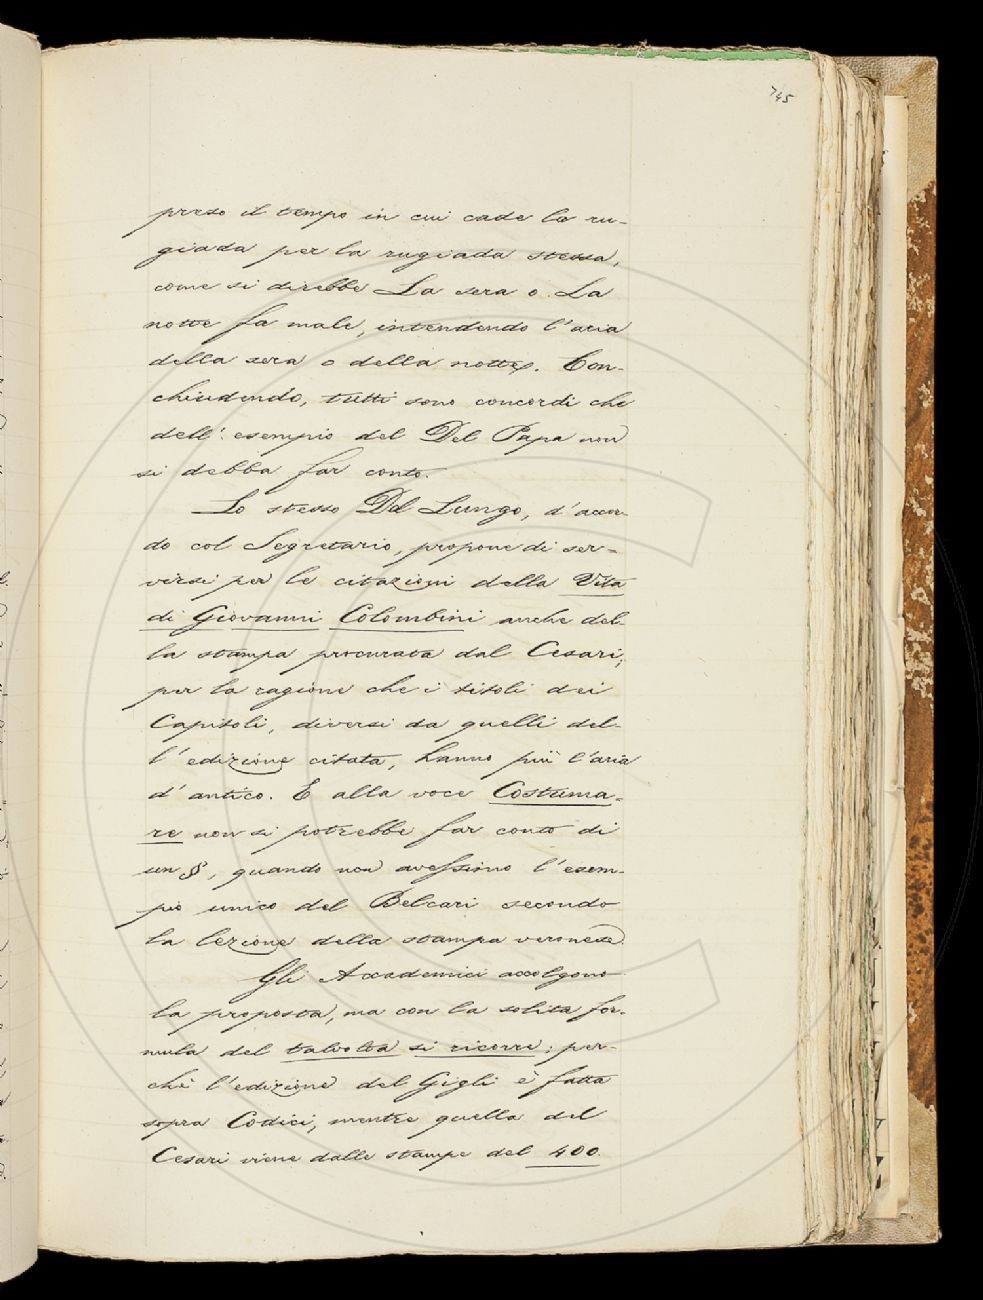 745
preso il tempo in cui cade la ru-
giada per la rugiada stessa,
come si direbbe La sera o La
notte fa male, intendendo l'aria
della sera o della notte. Con-
chiudendo, tutti sono concordi che
dell'esempio del Del Papa non
si debba far conto.
Lo stesso Del Lungo, d'accor-
do col Segretario, propone di ser-
virsi per le citazioni della Vita
di Giovanni Colombini anche del-
la stampa procurata dal Cesari;
per la ragione che i titoli dei
Capitoli, diversi da quelli del-
l'edizione citata, hanno più l'aria
d'antico. E alla voce Costuma-
re non si potrebbe far conto di
un §, quando non avessimo l'esem-
pio unico del Belcari secondo
la lezione della stampa veronese.
Gli Accademici accolgono
la proposta, ma con la solita for-
mula del talvolta si ricorre; per-
chè l'edizione del Gigli è fatta
sopra Codici, mentre quella del
Cesari viene dalle stampe del 400